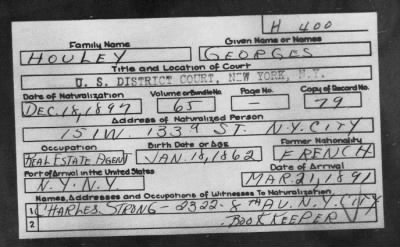 H 400
Family Name Given Name or Names
HOULEY GEORGES
Title and Location of Court
U. S. DISTRICT COURT, NEW YORK, N.Y.
Date of Naturalization Volume or Bundle No. Page No. Copy of Record No.
DEC. 18, 1897 65 — 79
Address of Naturalized Person
151 W. 133d ST. N.Y. CITY
Occupation Birth Date or Age Former Nationality
REAL ESTATE AGENT JAN. 18, 1862 FRENCH
Port of Arrival in the United States Date of Arrival
N.Y. N.Y. MAR. 21, 1891
Names, Addresses and Occupations of Witnesses To Naturalization
1 CHARLES STRONG - 2322 - 8th AV. N.Y. CITY
2 BOOK KEEPER